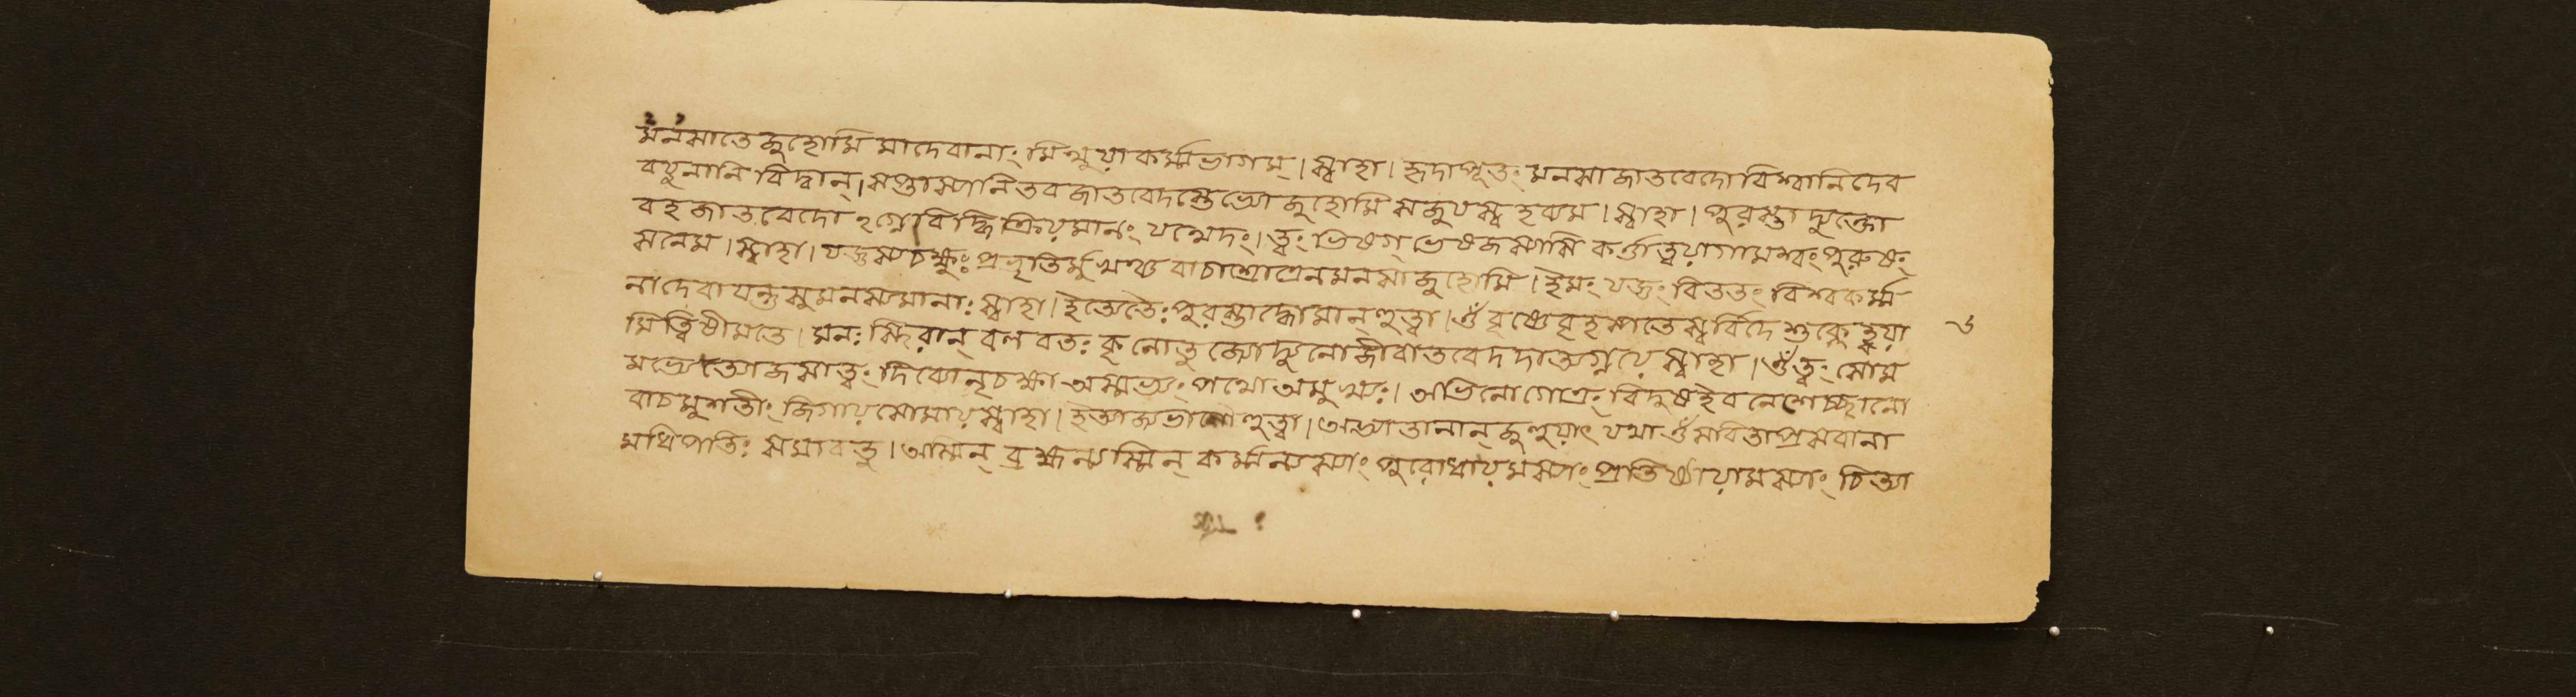 মনসাতে জুহোমি মাদেবানাং মিথুয়াকর্ম্মভাগম্। স্বাহা। হৃদাপূতং মনসাজাতবেদো বিশ্বানিদেব
বয়ুনানি বিদ্বান্। সপ্তাস্যানি তব জাতবেদস্তেভ্যো জুহোমি সজুষস্ব হব্যম। স্বাহা। পুরস্তাদ্যুক্তো
বহ জাতবেদো ঽগ্নে বিদ্ধি ক্রিয়মানং যথেদং। ত্বং ভিষগ্ ভেষজস্যাসি কর্ত্তাত্বয়াগামশ্বং পুরুষং
সনেম। স্বাহা। যজ্ঞস্যচক্ষুঃ প্রভৃতির্মুখঞ্চ বাচাশ্রোত্রেনমনসা জুহোমি। ইমং যজ্ঞং বিততং বিশ্বকর্ম্ম
নাদেবাযন্তু সুমনস্যমানাঃ স্বাহা। ইত্যেতৈঃ পুরস্তাদ্ধোমান্ হুত্বা। ওঁ বৃষ্ণে বৃহস্পতে স্বর্বিদে শুক্লে ত্বয়া
মিত্বিষীমতে। মনঃ স্থিরান্ বলবতঃ কৃনোতু জ্যোদ্যুনোজীবাতবেদদাত্যগ্নয়ে স্বাহা। ওঁ ত্বং সোম
দিব্যোনৃচক্ষা অস্মভ্যং পথো অমুখ্যঃ। অভিনোগোত্রং বিদুষইবনেশোচ্ছানো
বাচমুশতীং জিগায় সোমায় স্বাহা। ইত্যাজ্যভাগৌ হুত্বা। অভ্যাতানান্ জুহুয়াৎ যথা ওঁ সবিতাপ্রসবানা
মধিপতিঃ সমাবতু। অস্মিন্ ব্রহ্মন্যস্মিন্ কর্ম্মন্যস্যাং পুরোধায়মস্যাং প্রতিষ্ঠায়ামস্যাং চিত্যা